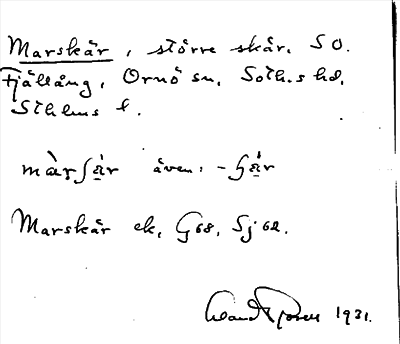 Marskär, större skär. SO.
Fjällång, Ornö sn, Soth.s hd,
Sthlms l.
även:
Marskär ek, G68, Sj 62.
1931.